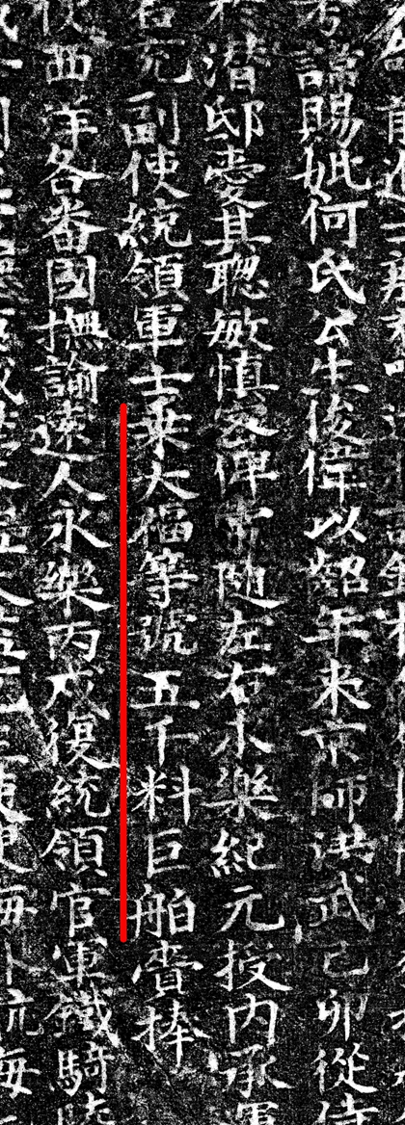 考諱賜妣何氏公生俊偉以齠年來京師洪武己卯從侍
於潛邸愛其聰敏慎密俾常隨左右永樂紀元授內承運
充副使統領軍士乘大福等號五千料巨舶齎捧
使西洋各番國撫諭遠人永樂丙戌復統領官軍鐵騎陸